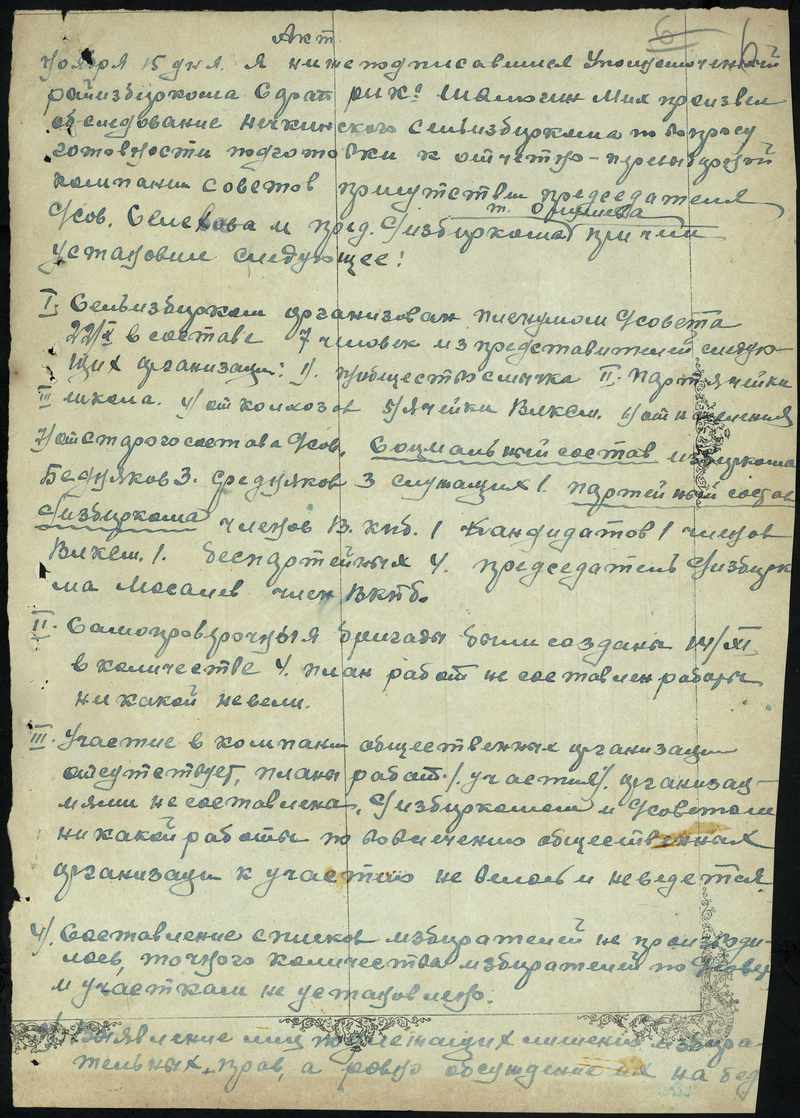 6 6
Акт
Ноября 15 дня я нижеподписавшийся Уполномоченный
райизбиркома Шалюгин Мих произвел
обследование Нечкинского сельизбиркома по вопросу
готовности подготовки к отчетно-перевыборной
компании советов присутствии председателя
с/сов. и пред. с/избиркома т. при чем
установил следующее:
I. Сельизбирком организован пленумом с/совета
22/X в составе 7 человек из представителей следую-
щих организаци: 1). п/общество смычка II. Партячейки
III школа. 4/ от колхозов 5/ячейки Влксм. 6/от населения
7/ от старого состава с/сов. Социальный состав избиркома
Бедняков 3. средняков 3 служащих 1. партейный состав
с/избиркома членов В.кпб. 1 Кандидатов 1 членов
Влксм. 1. беспартейных 4. председатель с/избирк
ма Мосалев член Вкпб.
II. Самопроверочныя бригады были созданы 14/XI
в количестве 4. план работ не составлен работы
никакой невели.
III. Участие в компани общественных организаци
отсутствует, планы работ /. участия/. организац-
иями не составлена, с/избиркомом и с/советом
никакой работы по вовлечению общественных
организаци к участию не велось и неведется.
4/. Составление списков избирателей не производи-
лось, точного количества избирателей по с/сову
и участкам не установлено.
Выявление лиц подлежащих лишению избира-
тельных прав, а ровно обсуждение их на бед